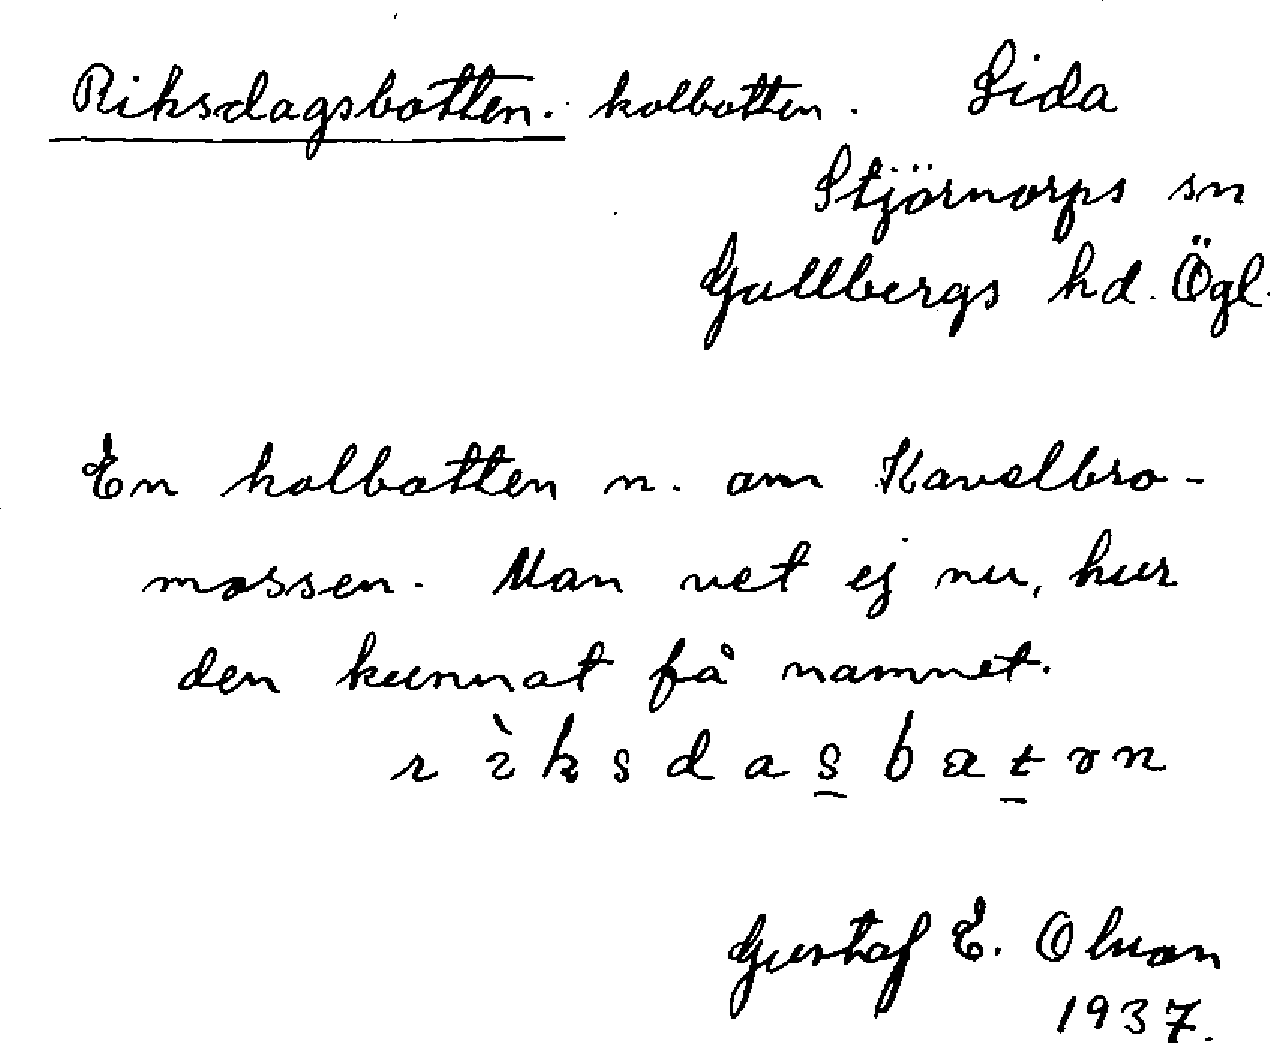 Riksdagsbotten. kolbotten. Lida
Stjörnorps sn
Gullbergs hd. Ögl.
En kolbotten n. om Kavelbro-
mossen. Man vet ej nu, hur
den kunnat få namnet.
Gustaf E. Olson
1937.